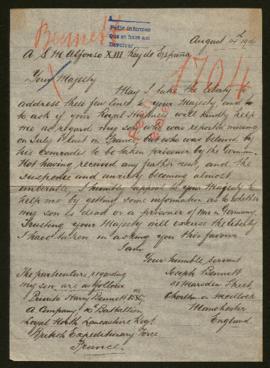 Bennett
August
A S M Alfonso XIII Rey de España
1704
Your Majesty
May I take the liberty
address these few lines to Your Majesty and
to ask if your Royal Highness will kindly help
me as regard my son who was reported missing
on July in but who was believed by
his Comrade to be taken prisoner by the
Not having received any further news, and the
suspense and anxiety becoming almost
unbearable, I humbly appeal to your Majesty to
help me by getting some information as to whether
my son is dead or a prisoner of war in Germany.
Trusting your Majesty will excuse the liberty
I have taken in asking you this favour
I am
Your humble servant
The particulars regarding
Joseph Bennett
my son are as follows
Marsden Street
Private Harry Bennett
Chorlton on Medlock
A Company Battalion
Manchester
Loyal North Lancashire Regt
England
British Expeditionary Force
France.